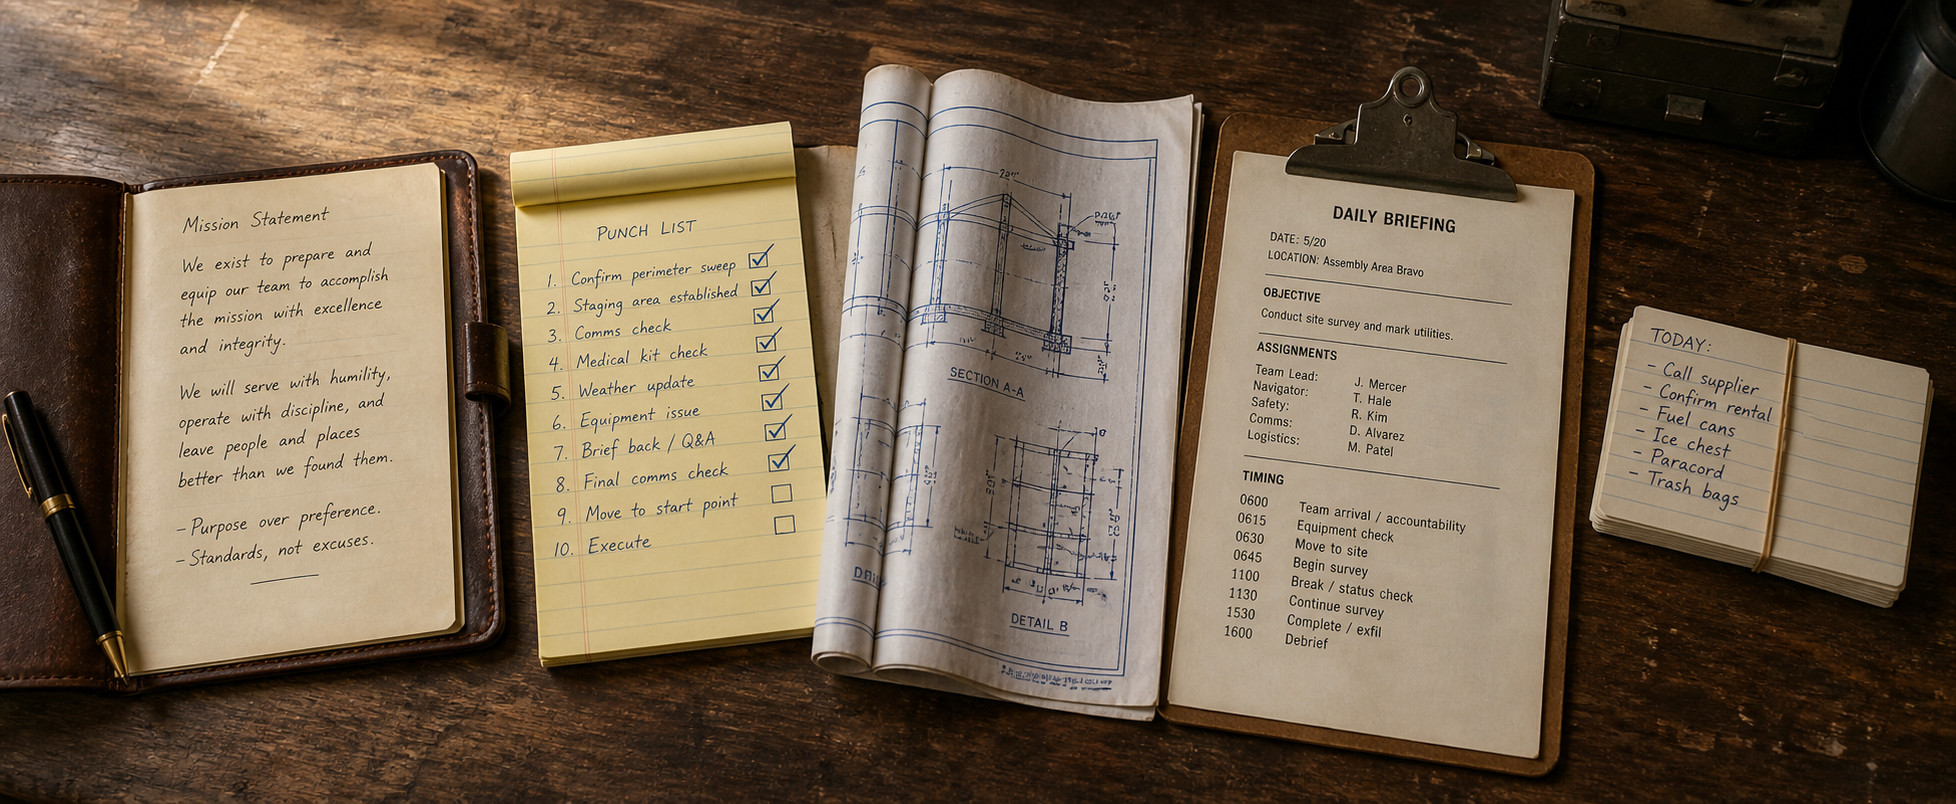 Mission Statement
We exist to prepare and
equip our team to accomplish
the mission with excellence
and integrity.
We will serve with humility,
operate with discipline, and
leave people and places
better than we found them.
– Purpose over preference.
– Standards, not excuses.
PUNCH LIST
1. Confirm perimeter sweep
2. Staging area established
3. Comms check
4. Medical kit check
5. Weather update
6. Equipment issue
7. Brief back / Q&A
8. Final comms check
9. Move to start point
10. Execute
SECTION A-A
DETAIL B
DAILY BRIEFING
DATE: 5/20
LOCATION: Assembly Area Bravo
OBJECTIVE
Conduct site survey and mark utilities.
ASSIGNMENTS
Team Lead: J. Mercer
Navigator: T. Hale
Safety: R. Kim
Comms: D. Alvarez
Logistics: M. Patel
TIMING
0600 Team arrival / accountability
0615 Equipment check
0630 Move to site
0645 Begin survey
1100 Break / status check
1130 Continue survey
1530 Complete / exfil
1600 Debrief
TODAY:
– Call supplier
– Confirm rental
– Fuel cans
– Ice chest
– Paracord
– Trash bags